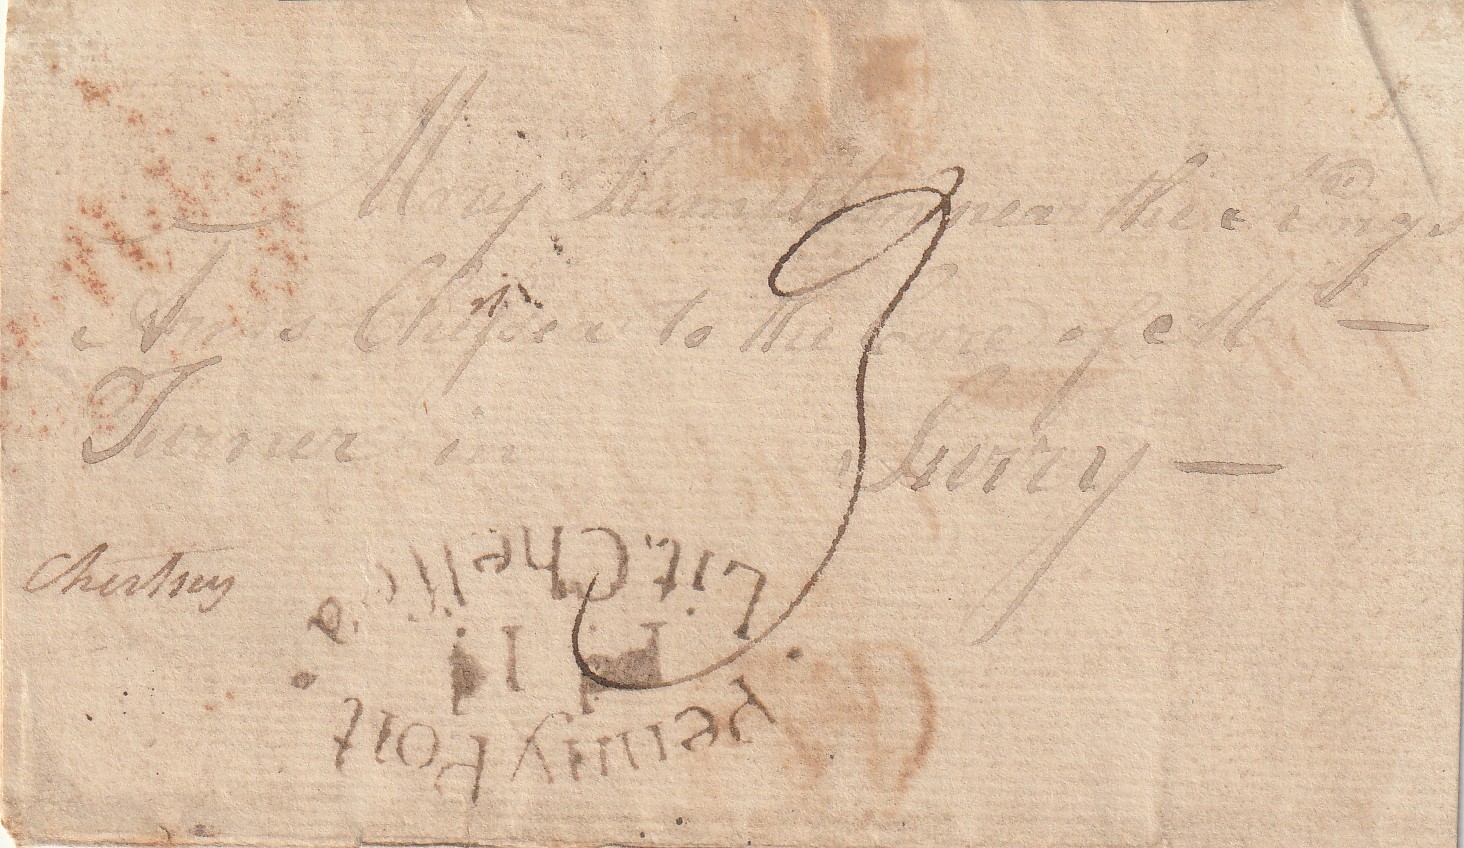 Mary Hamilton near the Kings
Arms Chelsea to the Care of Mr
Turner in Surry
Chertsey
9
Lit. Chelsea
Penny Post